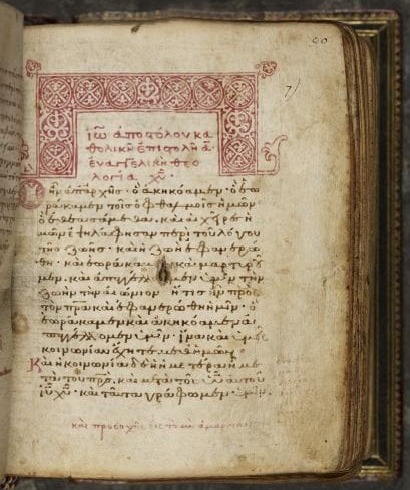 90
ἰω ἀποστόλου κα
θολικὴ ἐπιστολὴ α·
εὐαγγελικὴ θεο
λογία χυ·
Ὃ ἦν ἀπαρχῆς· ὃ ἀκηκόαμεν· ὃ ἑω
ράκαμεν τοῖς ὀφθαλμοῖς ἡμῶν
ὃ ἐθεασάμεθα. καὶ αἱ χεῖρες ἡ
μῶν ἐψηλάφησαν περὶ τοῦ λόγου
τῆς ζωῆς· καὶ ἡ ζωὴ ἐφανερώ
θη· καὶ ἑωράκαμεν καὶ μαρτυροῦ
μεν. καὶ ἀπαγγέλλομεν ὑμῖν τὴν
ζωὴν τὴν αἰώνιον· ἥτις ἦν πρὸς
τὸν πρα καὶ ἐφανερώθη ἡμῖν· ὃ
ἑωράκαμεν καὶ ἀκηκόαμεν ἀ
παγγέλλομεν ὑμῖν· ἵνα καὶ ὑμεῖς
κοινωνίαν ἔχητε μεθ ἡμῶν·
Καὶ ἡ κοινωνία δὲ ἡ ἡμετέρα με
τὰ τοῦ πρς. καὶ μετὰ τοῦ υυ αὐτοῦ
ιυ χυ· καὶ ταῦτα γράφομεν ὑμῖν·